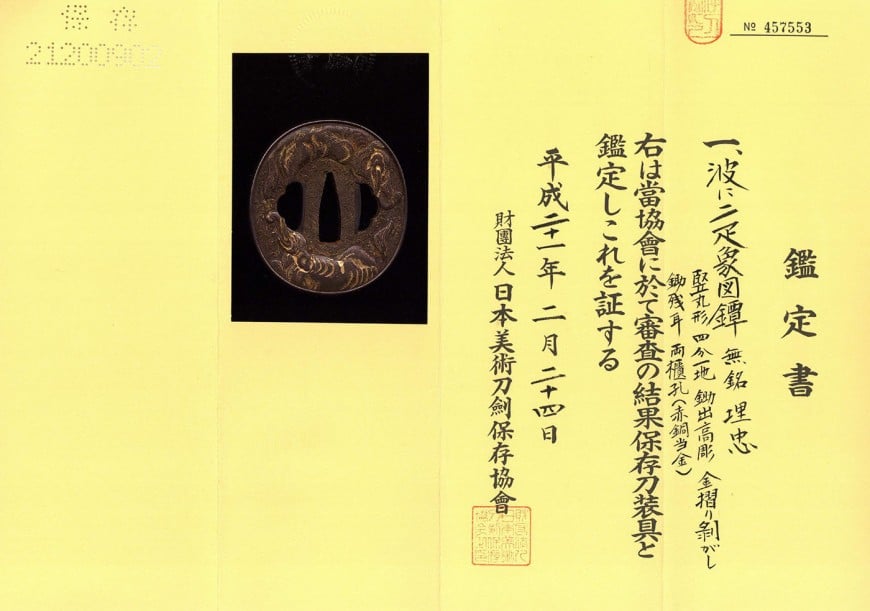 保存
№ 457553
鑑定書
一、波に二疋象図鐔 無銘 理忠
竪丸形 四分一地 鋤出高彫 金摺り剥がし
鋤残耳 両櫃孔(赤銅当金)
右は當協會に於て審査の結果保存刀装具と
鑑定しこれを証する
平成二十一年二月二十四日
財團法人 日本美術刀劍保存協會